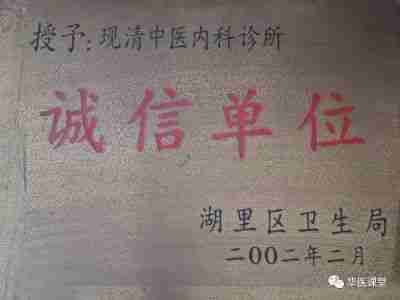 授予：现清中医内科诊所
诚信单位
湖里区卫生局
二00二年二月
华医课堂